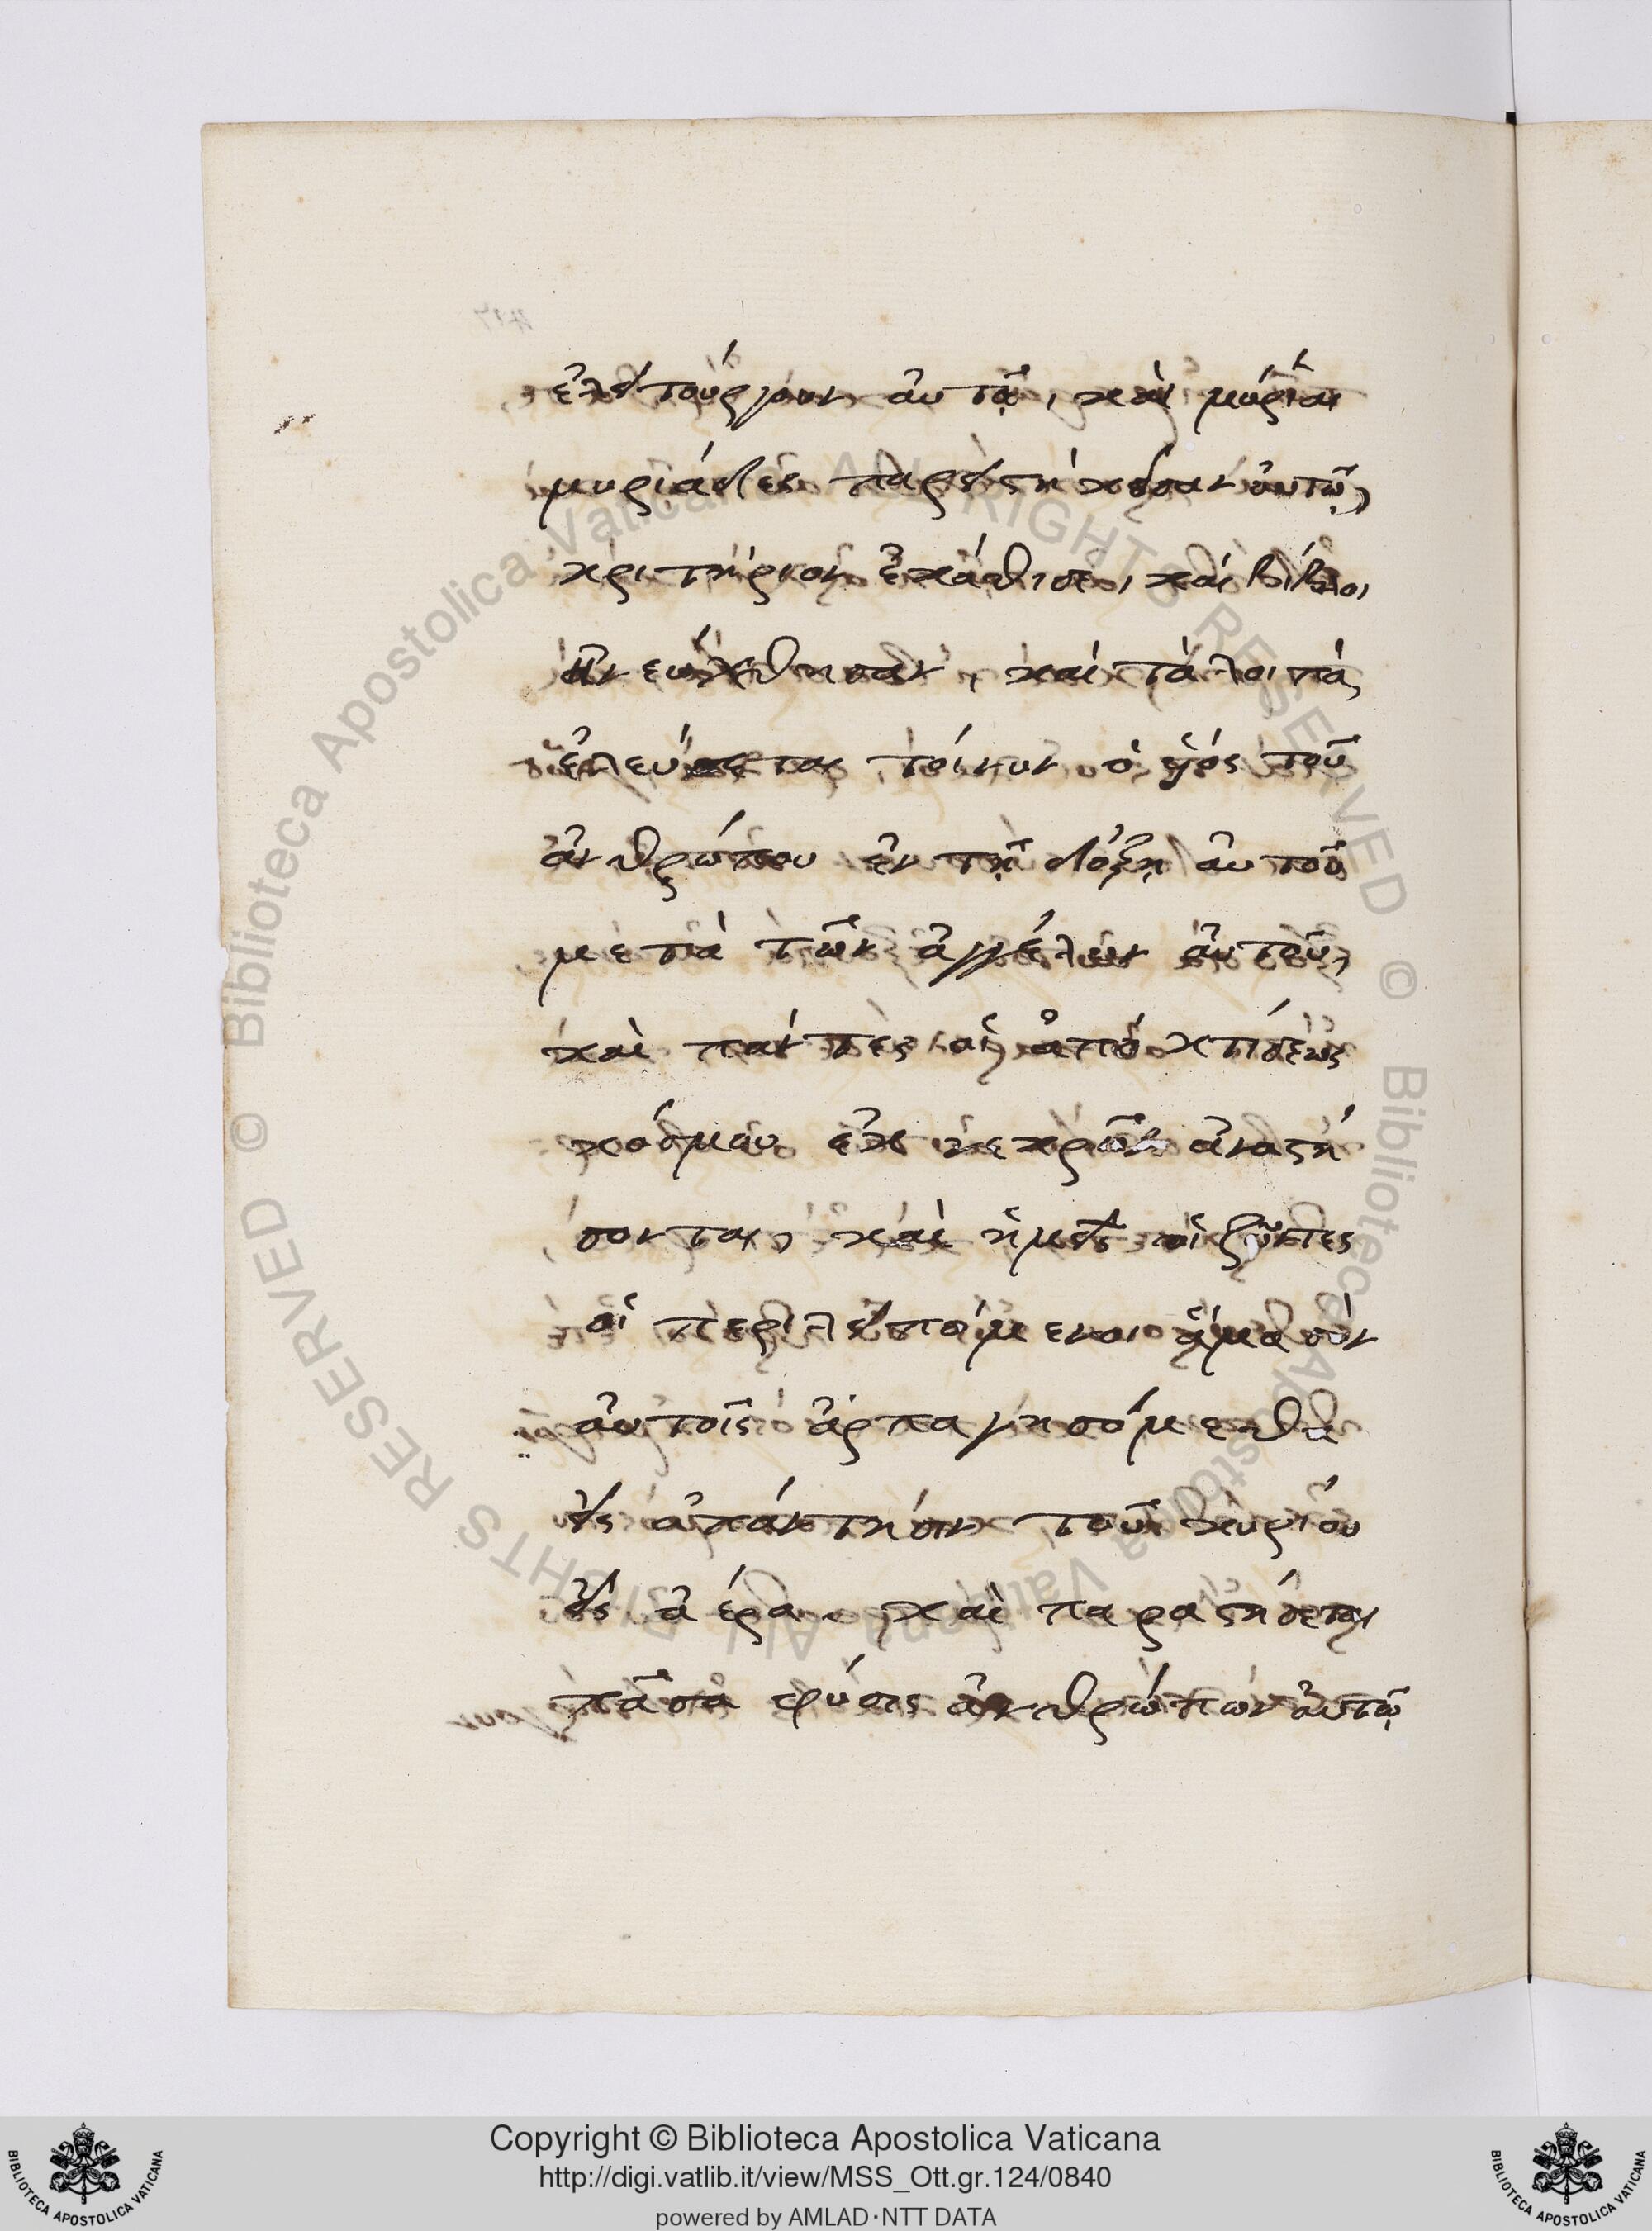 ἐλειτούργουν αὐτῷ, καὶ μύριαι
μυριάδες παρειστήκεισαν αὐτῷ,
κριτήριον ἐκάθισε, καὶ βίβλοι
ἀνεώχθησαν, καὶ τὰ λοιπά
ἐλεύσεται τοίνυν ὁ υἱός τοῦ
ἀνθρώπου ἐν τῇ δόξῃ αὐτοῦ
μετὰ τῶν ἀγγέλων αὐτοῦ,
καὶ πάντες οἱ ἀπὸ κτίσεως
κόσμου ἐκ νεκρῶν ἀναστή
σονται, καὶ ἡμεῖς οἱ ζῶντες
οἱ περιλειπόμενοι ἅμα σὺν
αὐτοῖς ἁρπαγησόμεθα
εἰς ἀπάντησιν τοῦ κυρίου
εἰς ἀέρα, καὶ παραστήσεται
πᾶσα φύσις ἀνθρώπων αὐτῷ
© Biblioteca Apostolica Vaticana ALL RIGHTS RESERVED © Biblioteca Apostolica Vaticana ALL RIGHTS RESERVED
Copyright © Biblioteca Apostolica Vaticana
http://digi.vatlib.it/view/MSS_Ott.gr.124/0840
powered by AMLAD·NTT DATA
BIBLIOTECA APOSTOLICA VATICANA
BIBLIOTECA APOSTOLICA VATICANA